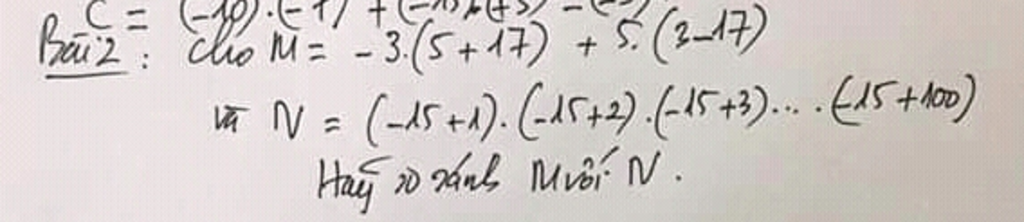 C = (-10).(-7) + (-15).(+3) - (
Bài 2 : Cho M = - 3.(5+17) + 5.(3-17)
và N = (-15+1).(-15+2).(-15+3)... .(-15+100)
Hãy so sánh M với N.